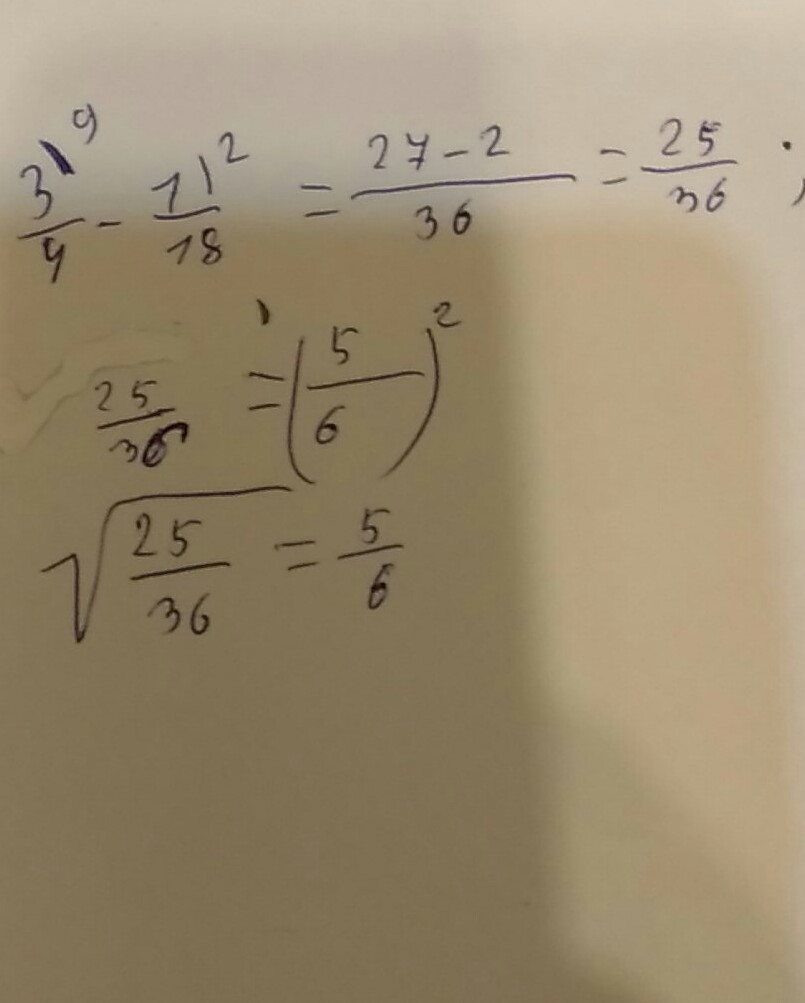 3⁹/4 - 1²/18 = 27-2/36 = 25/36 ;
25/36 = (5/6)²
√25/36 = 5/6